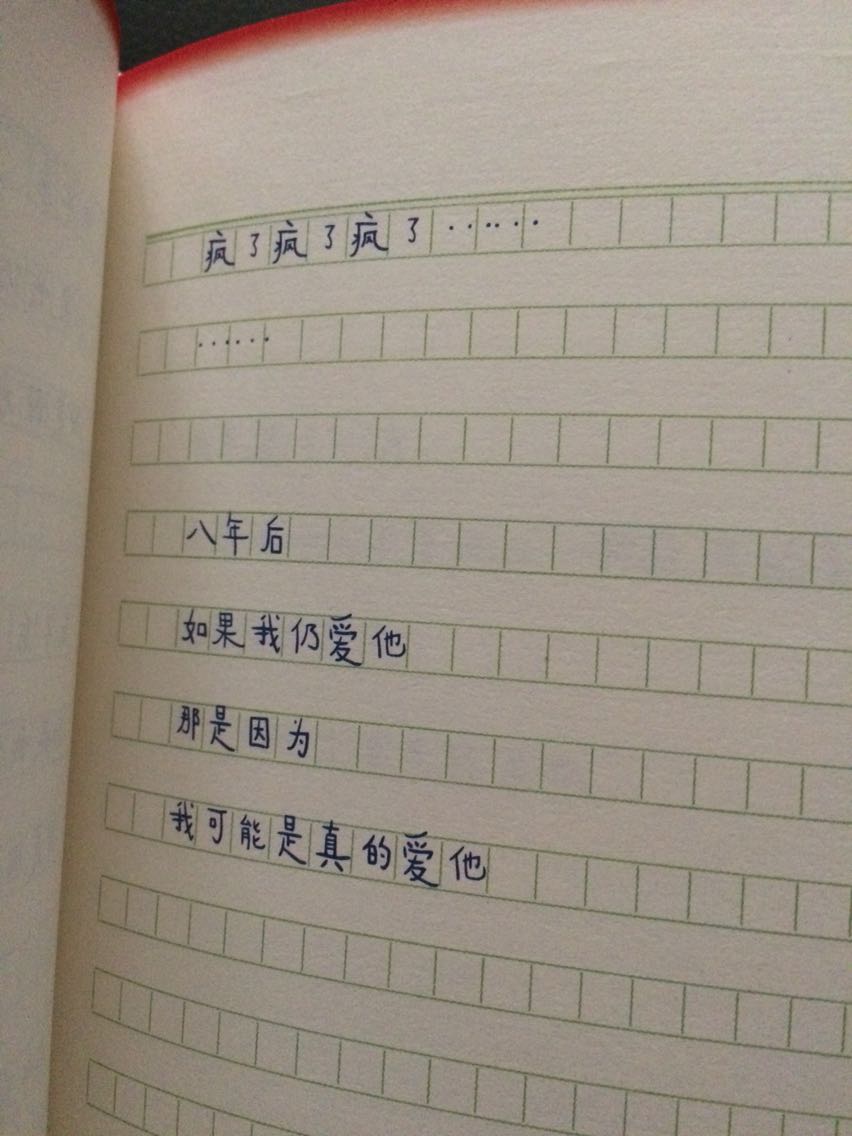 疯了疯了疯了……
……
八年后
如果我仍爱他
那是因为
我可能是真的爱他